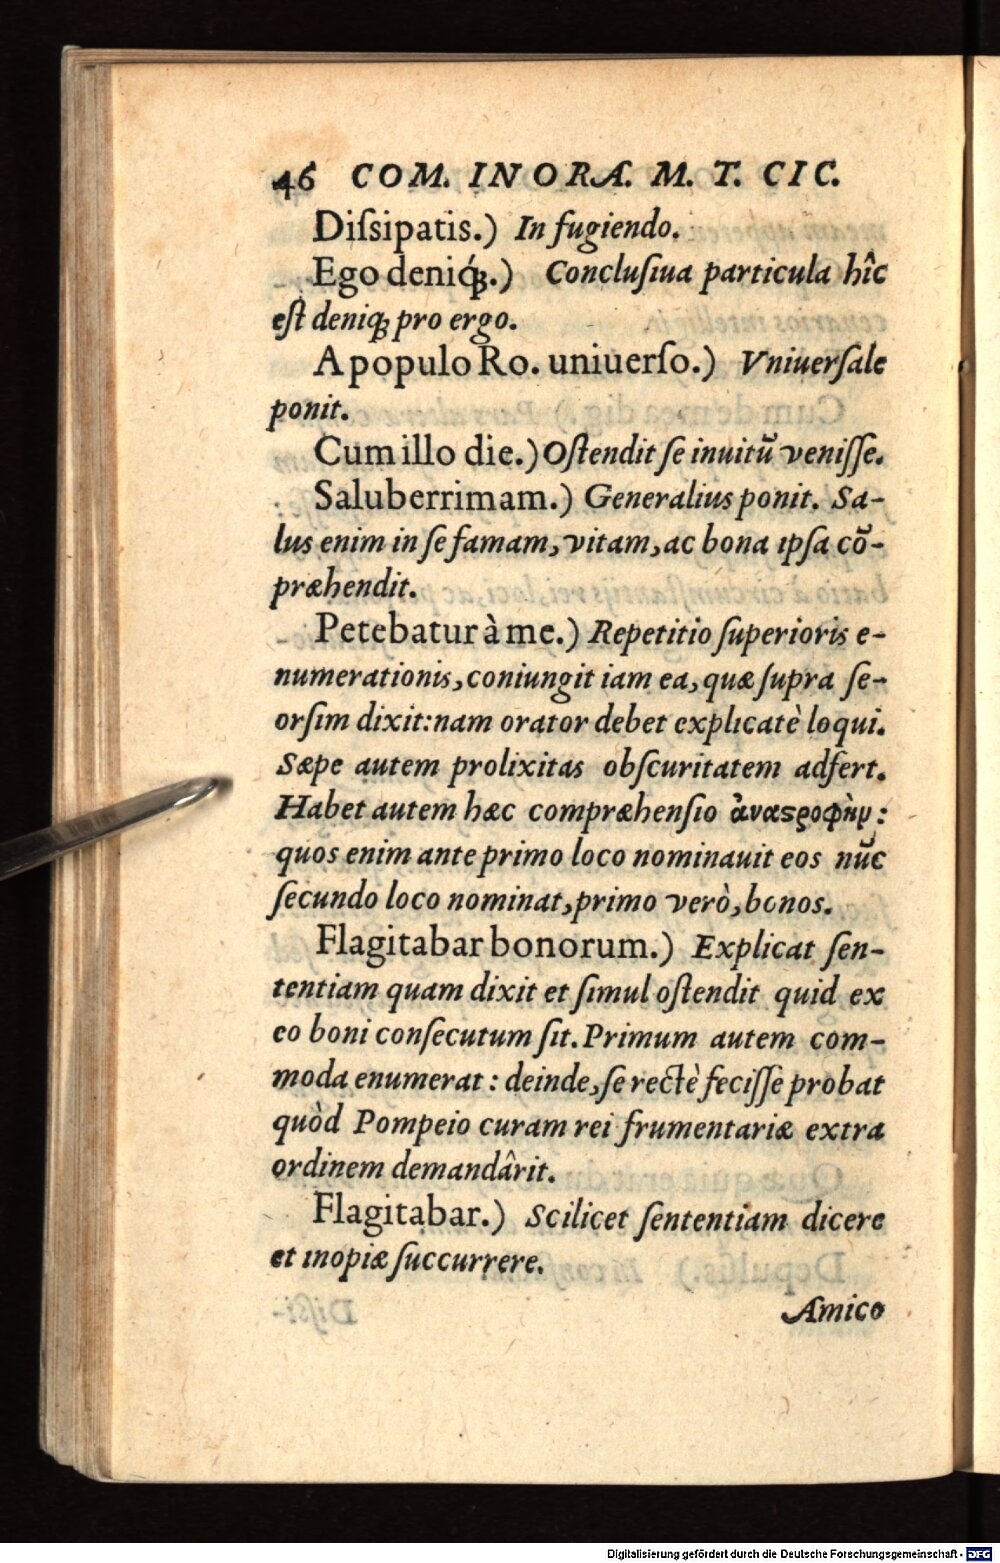 46 COM. IN ORA. M. T. CIC.
Diſsipatis.) In fugiendo.
Ego deniq́ꝫ.) Concluſiua particula hîc
eſt deniqꝫ pro ergo.
A populo Ro. uniuerſo.) Vniuerſale
ponit.
Cum illo die.) Oſtendit ſe inuitũ veniſſe.
Saluberrimam.) Generalius ponit. Sa-
lus enim in ſe famam, vitam, ac bona ipſa cõ-
præhendit.
Petebatur à me.) Repetitio ſuperioris e-
numerationis, coniungit iam ea, quæ ſupra ſe-
orſim dixit: nam orator debet explicatè loqui.
Sæpe autem prolixitas obſcuritatem adfert.
Habet autem hæc compræhenſio ἀναϛροφὴν:
quos enim ante primo loco nominauit eos nũc
ſecundo loco nominat, primo verò, bonos.
Flagitabar bonorum.) Explicat ſen-
tentiam quam dixit et ſimul oſtendit quid ex
eo boni conſecutum ſit. Primum autem com-
moda enumerat: deinde, ſe rectè feciſſe probat
quòd Pompeio curam rei frumentariæ extra
ordinem demandârit.
Flagitabar.) Scilicet ſententiam dicere
et inopiæ ſuccurrere.
Amico
Digitalisierung gefördert durch die Deutsche Forschungsgemeinschaft - DFG